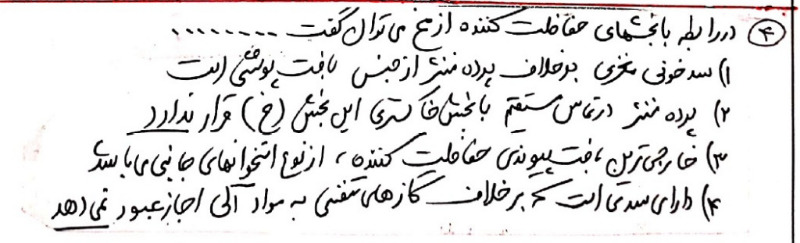 ۴) در رابطه با بخشهای حفاظت کننده از مخ می توان گفت ........
۱) سد خونی مغزی برخلاف پرده مننژ از جنس بافت پوششی است
۲) پرده مننژ در تماس مستقیم با بخش خاکستری این بخش (مخ) قرار ندارد
۳) خارجی ترین بافت پیوندی حفاظت کننده، از نوع استخوانهای جانبی می باشد
۴) دارای سدی است که برخلاف گازهای تنفسی به مواد آلی اجازه عبور نمی دهد